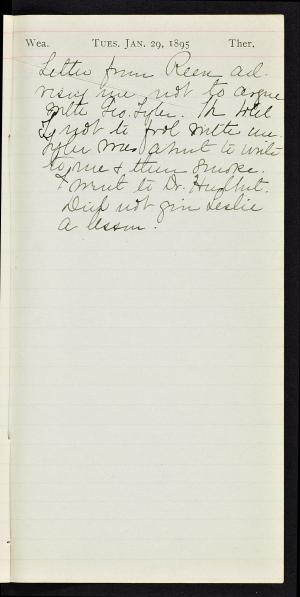 Wea. TUES. JAN. 29, 1895 Ther.
Letter from Reen ad-
vising me not to argue
with Geo. Tyler. He told
T. not to fool with me.
Tyler was about to write
to me & then smoke.
I went to Dr. Hurlbut.
Did not give Leslie
a lesson.